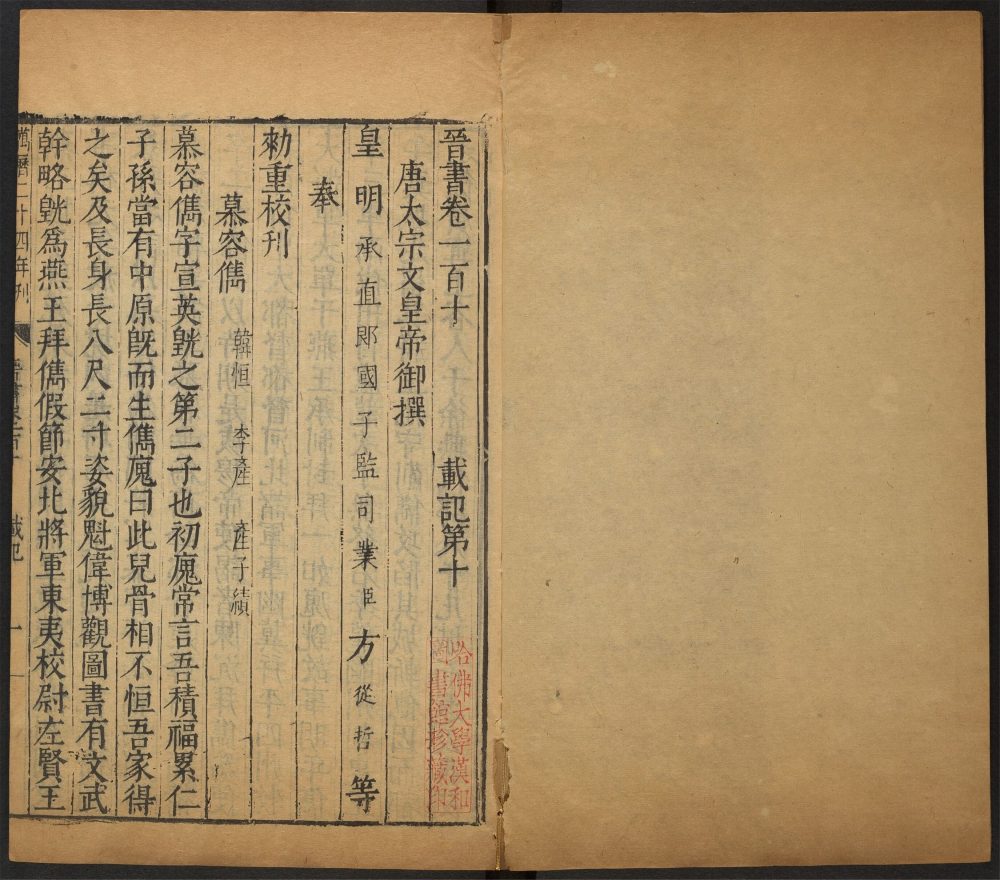 晉書卷一百十　載記第十
唐太宗文皇帝御撰
皇明承直郎國子監司業臣方從哲等
奉
勑重校刋
慕容儁　韓恒　李產　產子績
慕容儁字宣英皝之第二子也初廆常言吾積福累仁
子孫當有中原旣而生儁廆曰此兒骨相不恒吾家得
之矣及長身長八尺二寸姿貌魁偉博觀圖書有文武
幹略皝爲燕王拜儁假節安北將軍東夷校尉左賢王
萬曆二十四年刋
晉書卷一百十　載記　一
哈佛大學漢和
圖書館珍藏印